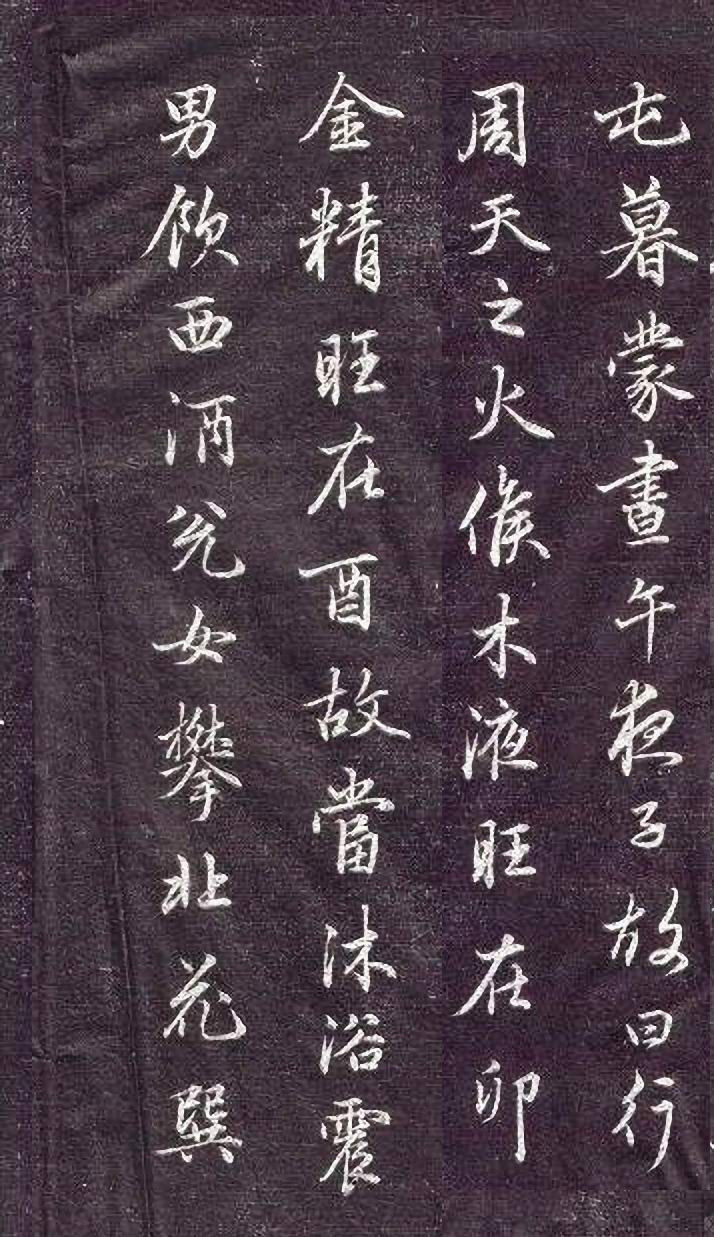 屯暮蒙晝午夜子故曰行
周天之火候木液旺在卯
金精旺在酉故當沐浴震
男飲西酒兌女攀北花巽